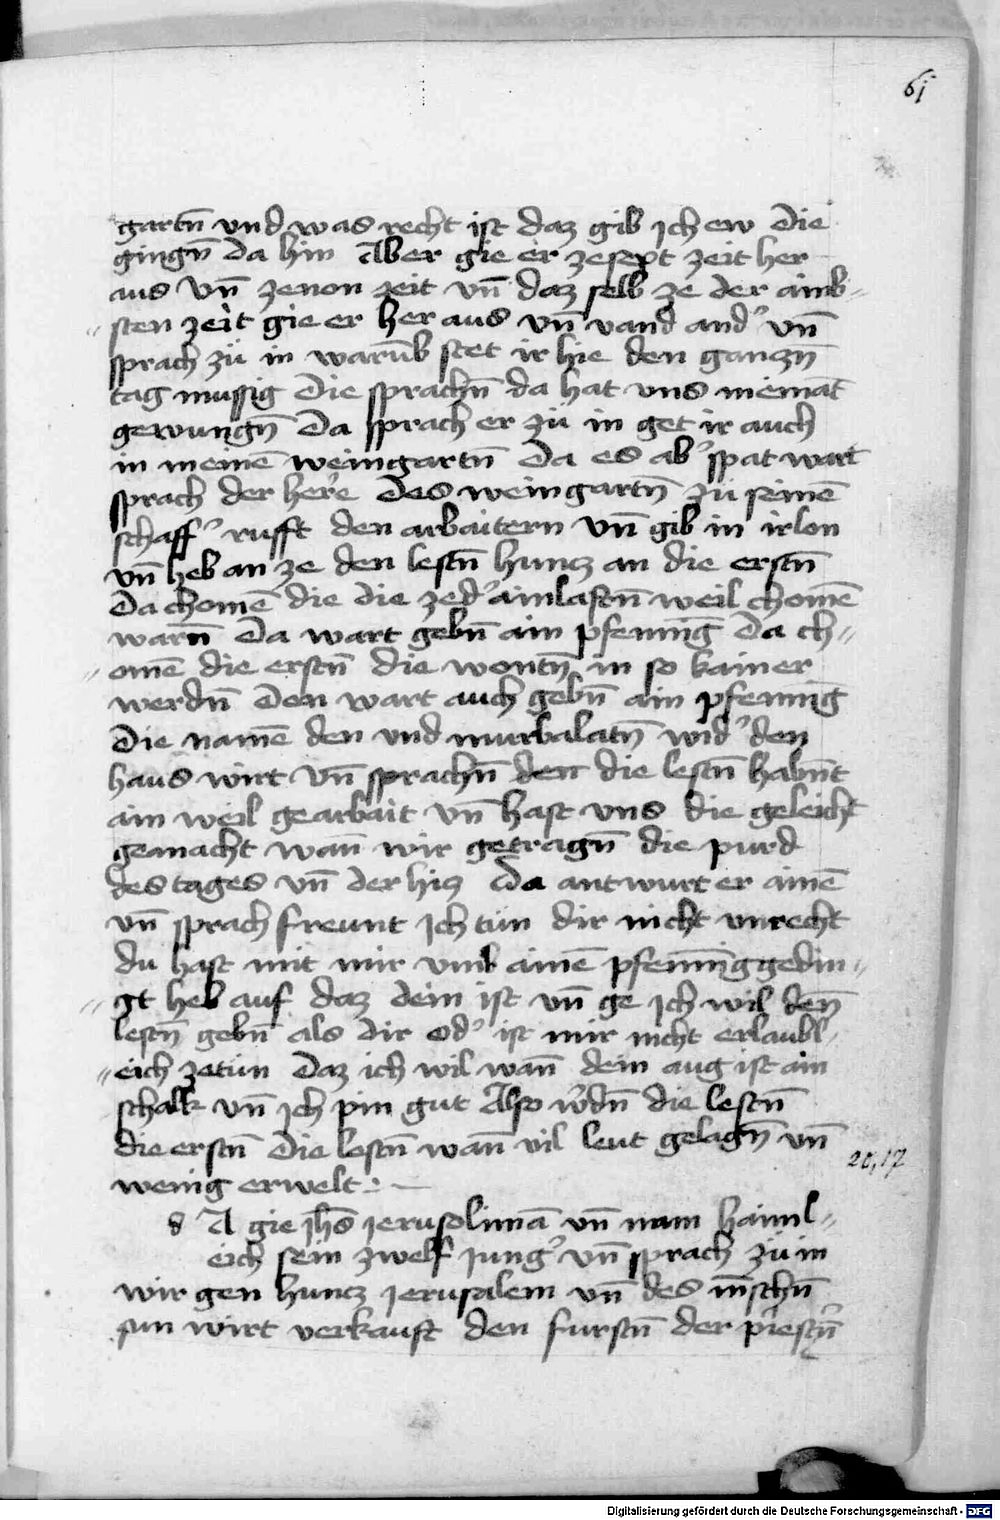 61
gartn̄ vnd was recht ist daz gib ich ew Die
gingn̄ da hin Aber gie er ze sext zeit her
aus vn̄ ze non zeit vn̄ daz selb ze der aind-
sten zeit gie er her aus vn̄ vand and' vn̄
sprach zü in warūb stet ir hie den ganczn̄
tag mussig Die sprachn̄ da hat vns niemāt
gewungn̄ Da sprach er zü in get ir auch
in meinē weingartn̄ Da es ab' spat wart
sprach der herre des weingartn̄ zü seinē
schaff' rufft den arbaitern vn̄ gib in ir lon
vn̄ heb an ze den lestn̄ huncz an die erstn̄
Da chomē die die ze d' ainlaftn̄ weil chomē
warn̄ Da wart gebn̄ ain pfenni̅g Da ch-
omē die erstn̄ die wontn̄ in so kain er
werdn̄ Den wart auch gebn̄ ain pfenni̅g
Die namē den vnd murbalatn̄ wid' den
haus wirt vn̄ sprachn̄ den die lestn̄ habn̄t
ain weil gearbait vn̄ hast vns die geleicht
gemacht wan̄ wir getragn̄ die purd
des tages vn̄ der hicz Da antwurt er ainē
vn̄ sprach freunt Ich tün dir nicht vnrecht
du hast mit mir vmb ainē pfenni̅g gedin-
gt heb auf daz dein ist vn̄ ge Ich wil den̄
lestn̄ gebn̄ als dir Od' ist mir nicht erlaubl-
eich ze tün Daz ich wil wan̄ dein aug ist ain
schalk vn̄ ich pin gut Also w'dn̄ die lestn̄
die erstn̄ Die lestn̄ wan̄ vil leut geladn̄ vn̄
20,17
wenig erwelt
d A gie jh̄s ierusolimā vn̄ nam haiml-
eich sein zwelf iung' vn̄ sprach zü in
wir gen huncz ierusalem vn̄ des mēschn̄
sun wirt verkauft den furstn̄ der priestn̄'
Digitalisierung gefördert durch die Deutsche Forschungsgemeinschaft - DFG